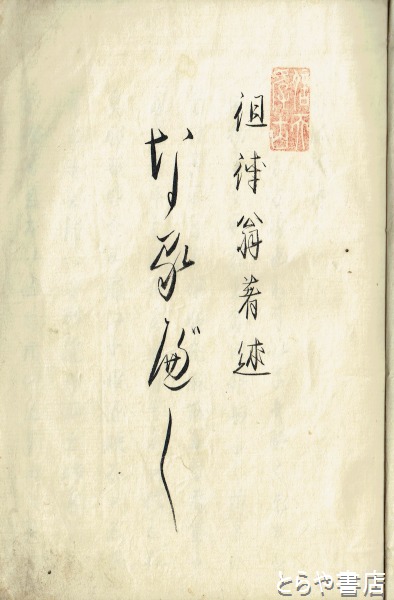 徂徠翁著述
なるべし
とらや書店